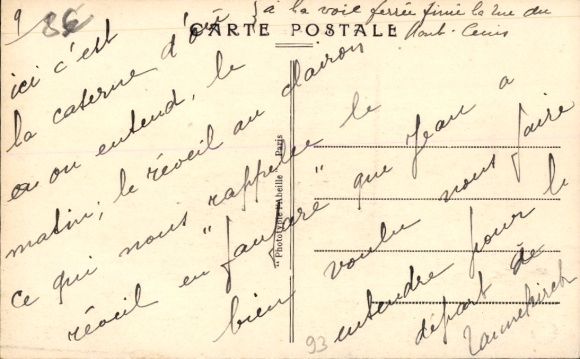 9 86
à la voie ferrée finie la rue du
Mont-Cenis
CARTE POSTALE
ici c'est
la caserne d'où
on entend, le
matin, le réveil au clairon
ce qui nous rappelle le
réveil en "fanfare" que Jean a
bien voulu nous faire
entendre pour le
départ de
Tannekirch
"Phototypie l'Abeille" Paris
93